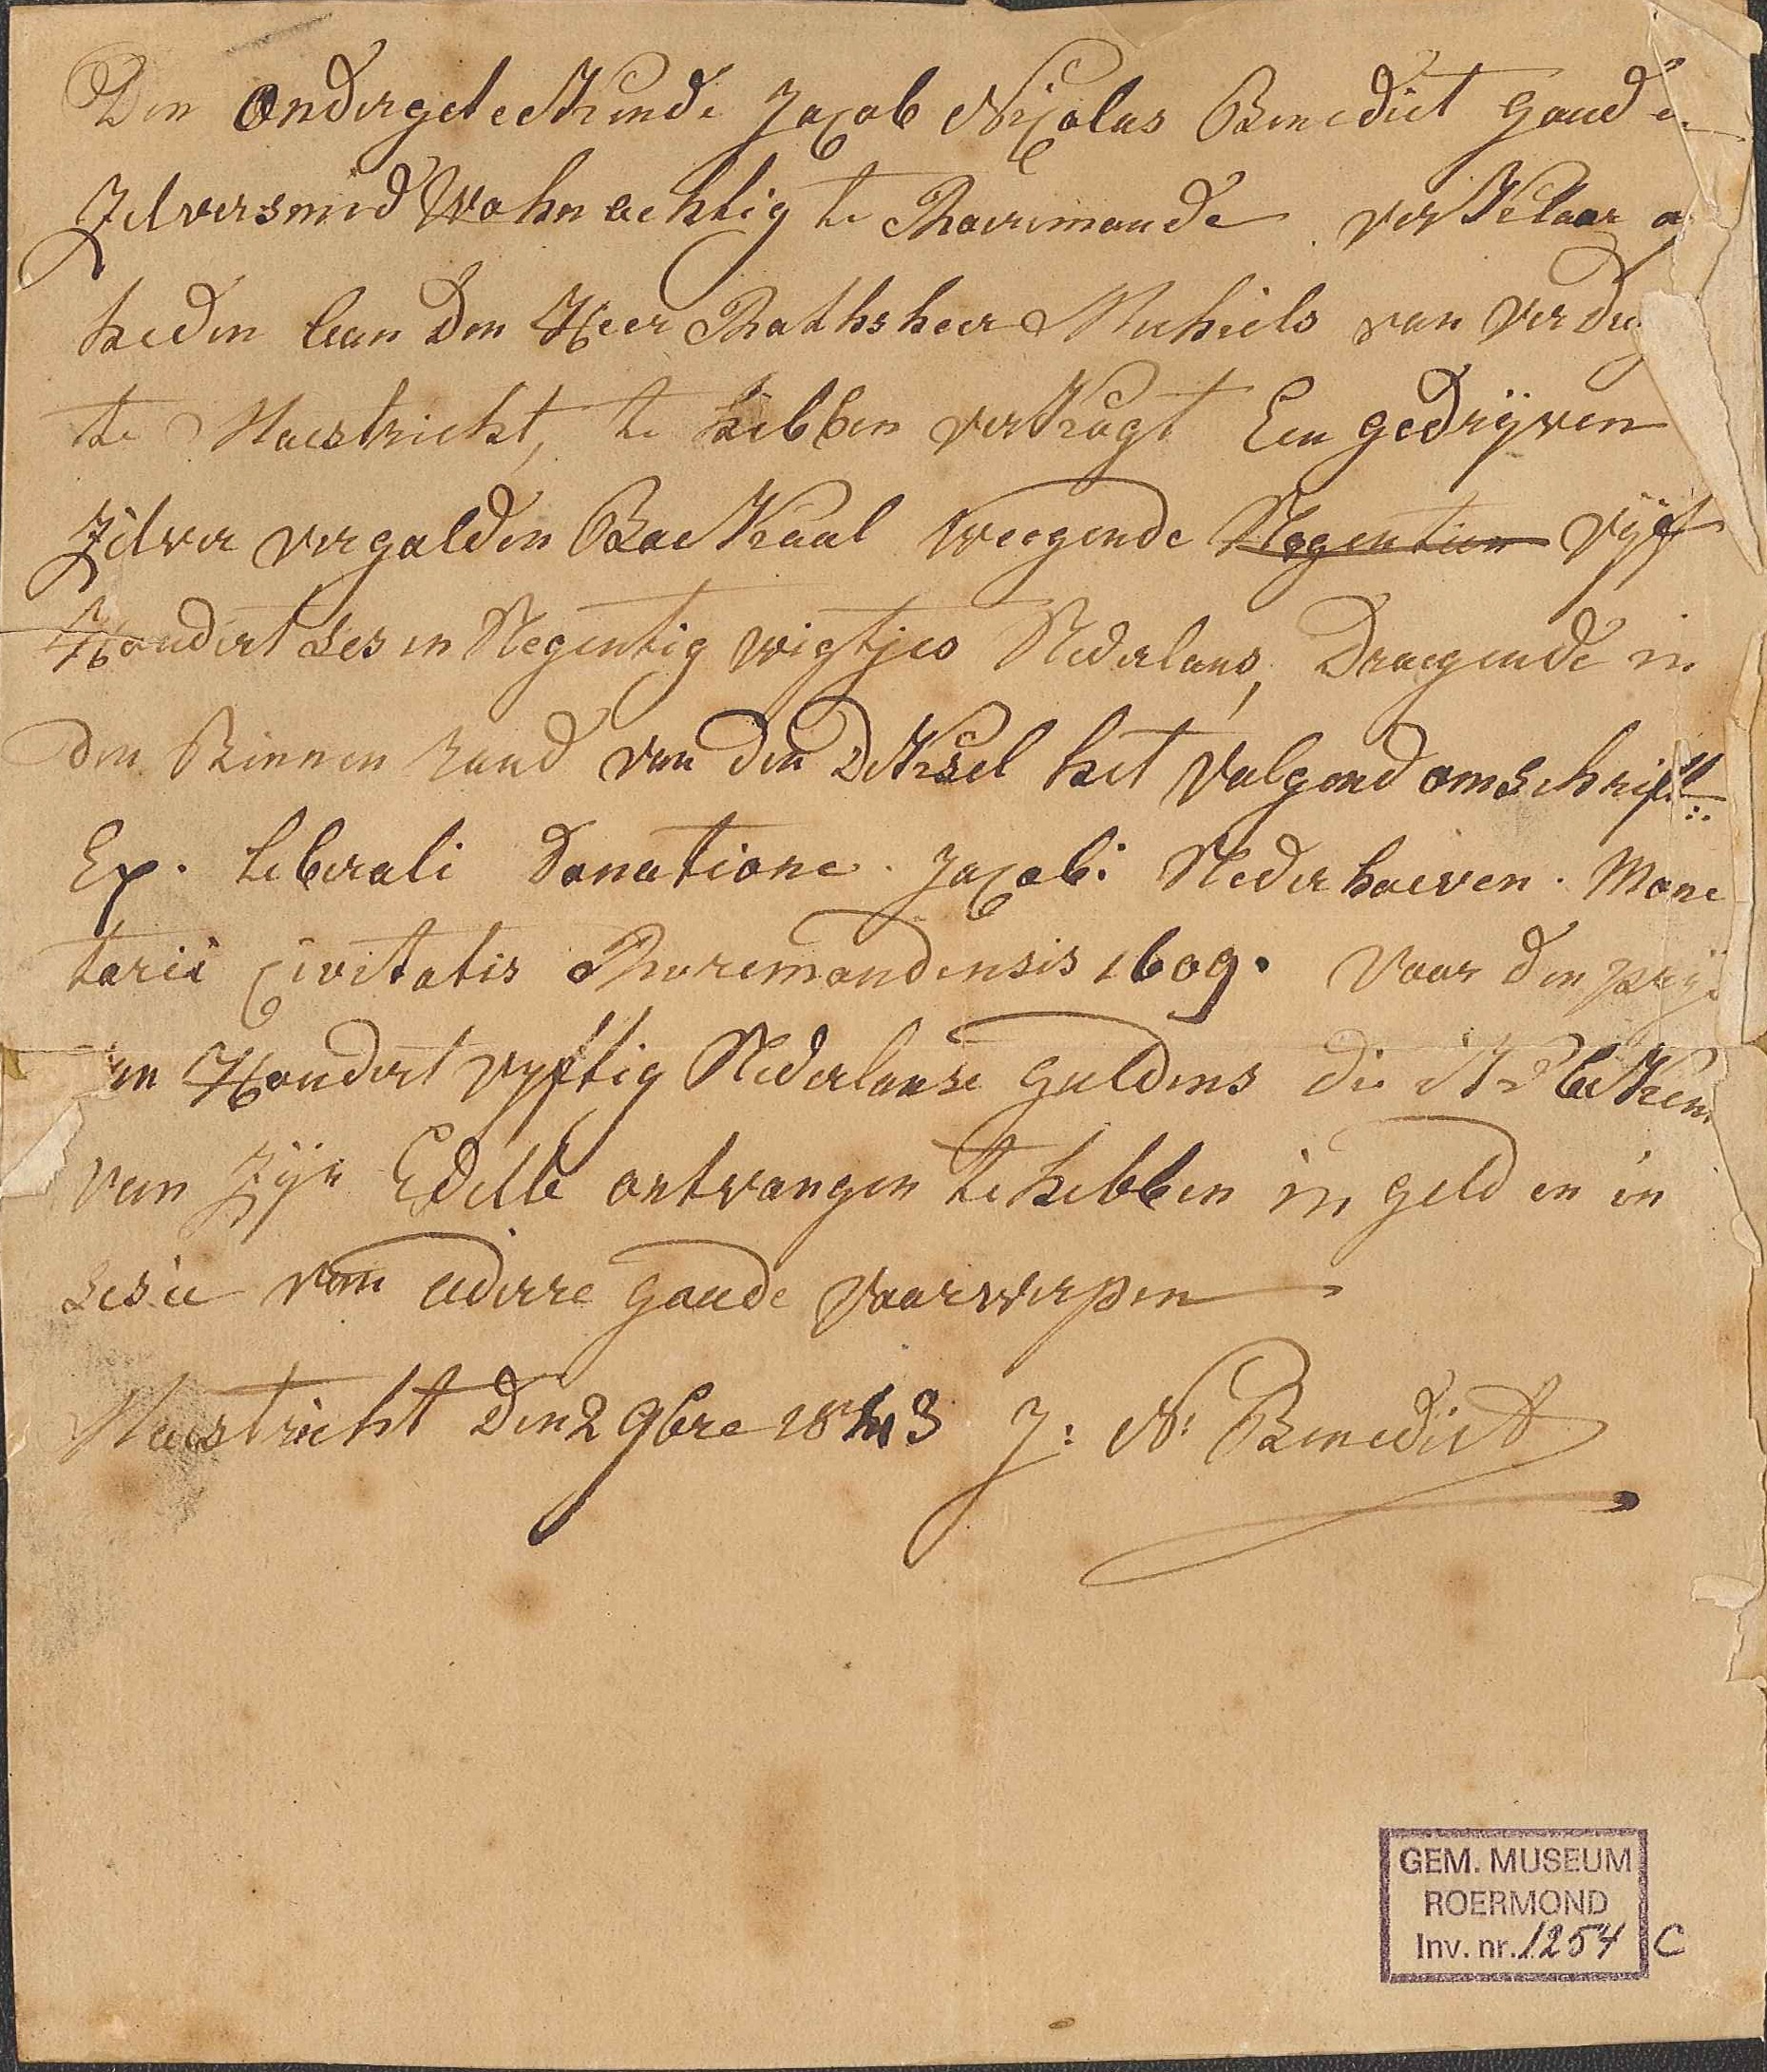 Den ondergeteekende Jacob Nicolas Benedict goud en
Zilversmid Wohnachtig te Rouremonde verklaar
heden aan den Heer Rathsheer Michiels van
te Maestricht, te hebben verkogt Een gedryven
Zilver vergolden Backaal weegende Negentien vyf
Hondert ses en Negentig wigtjes Nederlans, Draegende in
den Binnen rand van den Deksel het volgend omschrift:
Ex. liberali donatione. Jacobi Nederhoeven. Mone
tarii civitatis Ruremondensis 1609. voor den prys
van Hondert vyftig Nederlanse guldens die ik
van zyn Edele ontvangen te hebben in geld en in
van adere goude voorwerpen
Maestricht den 2 9bre 1843 J: N: Benedict
GEM. MUSEUM
ROERMOND
Inv. nr. 1254 C